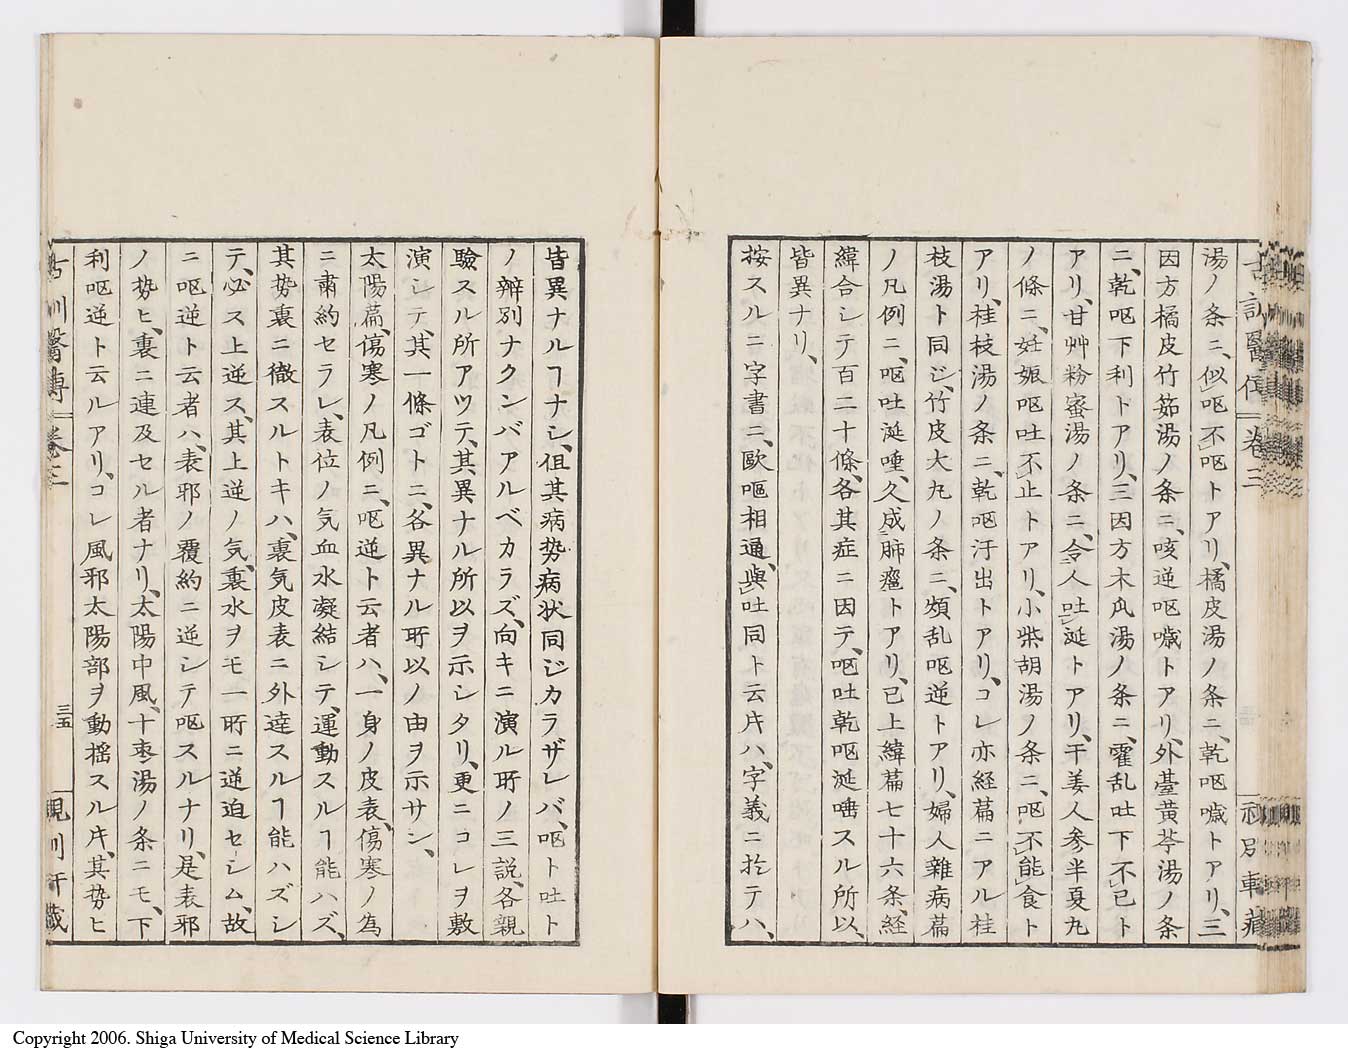 湯ノ条ニ、似呕不呕トアリ、橘皮湯ノ条ニ、乾呕噦トアリ、三
因方橘皮竹茹湯ノ条ニ、咳逆呕噦トアリ、外臺黄芩湯ノ条
ニ、乾呕下利トアリ、三因方木瓜湯ノ条ニ、霍乱吐下不已ト
アリ、甘艸粉蜜湯ノ条ニ、令人吐涎トアリ、干姜人参半夏丸
ノ條ニ、妊娠呕吐不止トアリ、小柴胡湯ノ条ニ、呕不能食ト
アリ、桂枝湯ノ条ニ、乾呕汗出トアリ、コレ亦経篇ニアル桂
枝湯ト同ジ、竹皮大丸ノ条ニ、煩乱呕逆トアリ、婦人雜病篇
ノ凡例ニ、呕吐涎唾、久成肺癰トアリ、已上緯篇七十六条、経
緯合シテ百二十條、各其症ニ因テ、呕吐乾呕涎唾スル所以、
皆異ナリ、
按スルニ字書ニ、歐嘔相通、與吐同ト云𪜈ハ、字義ニ於テハ、
皆異ナルヿナシ、但其病势病状同ジカラザレバ、呕ト吐ト
ノ辨別ナクンバアルベカラズ、向キニ演ル所ノ三説、各親
驗スル所アツテ、其異ナル所以ヲ示シタリ、更ニコレヲ敷
演シテ、其一條ゴトニ、各異ナル所以ノ由ヲ示サン、
太陽篇、傷寒ノ凡例ニ、呕逆ト云者ハ、一身ノ皮表、傷寒ノ為
ニ肅約セラレ、表位ノ気血水凝結シテ、運動スルヿ能ハズ、
其势裏ニ徹スルトキハ、裏気皮表ニ外達スルヿ能ハズシ
テ、必ス上逆ス、其上逆ノ気、裏水ヲモ一所ニ逆迫セシム、故
ニ呕逆ト云者ハ、表邪ノ覆約ニ逆シテ呕スルナリ、是表邪
ノ势ヒ、裏ニ連及セル者ナリ、太陽中風、十枣湯ノ条ニモ、下
利呕逆ト云ルアリ、コレ風邪太陽部ヲ動揺スル𪜈、其势ヒ
古訓醫傳 卷三
三五
Copyright 2006. Shiga University of Medical Science Library